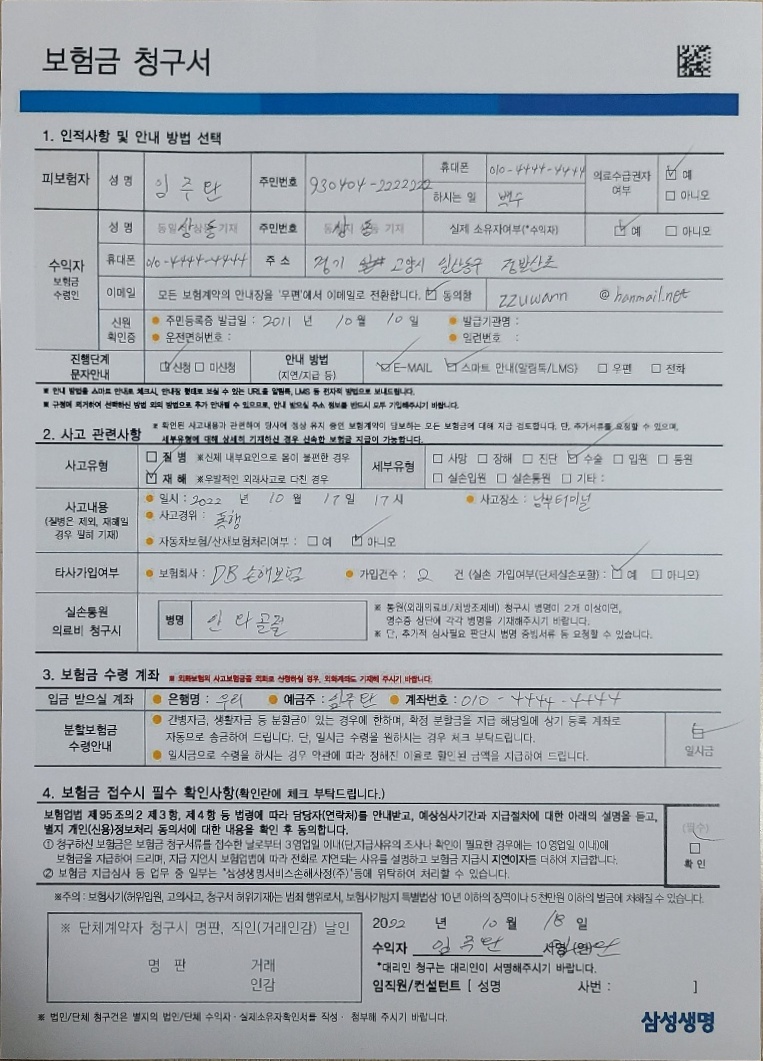 보험금 청구서
1. 인적사항 및 안내 방법 선택
피보험자 성 명 임주탄 주민번호 930404-2222222 휴대폰 010-4444-4444 의료수급권자 여부 예 아니오
하시는 일 백수
수익자 보험금 수령인 성 명 동일시 상동 기재 주민번호 상동 기재 실제 소유자여부(*수익자) 예 아니오
휴대폰 010-4444-4444 주 소 경기 고양시 일산동구 정발산로
이메일 모든 보험계약의 안내장을 '우편'에서 이메일로 전환합니다. 동의함 zzuwann @hanmail.net
신원 확인증 주민등록증 발급일 : 2011 년 10 월 10 일 발급기관명 :
운전면허번호 : 일련번호 :
진행단계 문자안내 신청 미신청 안내 방법 (지연/지급 등) E-MAIL 스마트 안내(알림톡/LMS) 우편 전화
※ 안내 방법을 스마트 안내로 체크시, 안내장 형태로 보실 수 있는 URL을 알림톡, LMS 등 전자적 방법으로 보내드립니다.
※ 규정에 의거하여 선택하신 방법 외의 방법으로 추가 안내될 수 있으므로, 안내 받으실 주소 정보를 반드시 모두 기입해주시기 바랍니다.
2. 사고 관련사항 ※ 확인된 사고내용과 관련하여 당사에 정상 유지 중인 보험계약이 담보하는 모든 보험금에 대해 지급 검토합니다. 단, 추가서류를 요청할 수 있으며,
세부유형에 대해 상세히 기재하신 경우 신속한 보험금 지급이 가능합니다.
사고유형 질 병 *신체 내부요인으로 몸이 불편한 경우 세부유형 사망 장해 진단 수술 입원 통원
재 해 *우발적인 외래사고로 다친 경우 실손입원 실손통원 기타 :
사고내용 (질병은 제외, 재해일 경우 필히 기재) 일시 : 2022 년 10 월 17 일 17 시 사고장소 : 남부터미널
사고경위 : 폭행
자동차보험/산재보험처리여부 : 예 아니오
타사가입여부 보험회사 : DB 손해보험 가입건수 : 2 건 (실손 가입여부(단체실손포함) : 예 아니오)
실손통원 의료비 청구시 병명 안와골절 ※ 통원(외래의료비/처방조제비) 청구시 병명이 2개 이상이면,
영수증 상단에 각각 병명을 기재해주시기 바랍니다.
※ 단, 추가적 심사필요 판단시 병명 증빙서류 등 요청할 수 있습니다.
3. 보험금 수령 계좌 ※ 외화보험의 사고보험금을 외화로 신청하실 경우, 외화계좌도 기재해 주시기 바랍니다.
입금 받으실 계좌 은행명 : 우리 예금주 : 임주탄 계좌번호 : 010-4444-4444
분할보험금 수령안내 간병자금, 생활자금 등 분할금이 있는 경우에 한하며, 확정 분할금을 지급 해당일에 상기 등록 계좌로
자동으로 송금하여 드립니다. 단, 일시금 수령을 원하시는 경우 체크 부탁드립니다.
일시금으로 수령을 하시는 경우 약관에 따라 정해진 이율로 할인된 금액을 지급하여 드립니다.
일시금
4. 보험금 접수시 필수 확인사항(확인란에 체크 부탁드립니다.)
보험업법 제95조의2 제3항, 제4항 등 법령에 따라 담당자(연락처)를 안내받고, 예상심사기간과 지급절차에 대한 아래의 설명을 듣고,
별지 개인(신용)정보처리 동의서에 대한 내용을 확인 후 동의합니다.
① 청구하신 보험금은 보험금 청구서류를 접수한 날로부터 3영업일 이내(단,지급사유의 조사나 확인이 필요한 경우에는 10영업일 이내)에
보험금을 지급하여 드리며, 지급 지연시 보험업법에 따라 전화로 지연되는 사유를 설명하고 보험금 지급시 지연이자를 더하여 지급합니다.
② 보험금 지급심사 등 업무 중 일부는 "삼성생명서비스손해사정(주)"등에 위탁하여 처리할 수 있습니다.
(필수)
확 인
※주의 : 보험사기(허위입원, 고의사고, 청구서 허위기재)는 범죄 행위로서, 보험사기방지 특별법상 10년 이하의 징역이나 5천만원 이하의 벌금에 처해질 수 있습니다.
※ 단체계약자 청구시 명판, 직인(거래인감) 날인
명 판 거래 인감
2022 년 10 월 18 일
수익자 임주탄 서명(인)
*대리인 청구는 대리인이 서명해주시기 바랍니다.
임직원/컨설턴트 [ 성명 사번 : ]
※ 법인/단체 청구건은 별지의 법인/단체 수익자·실제소유자확인서를 작성· 첨부해 주시기 바랍니다.
삼성생명